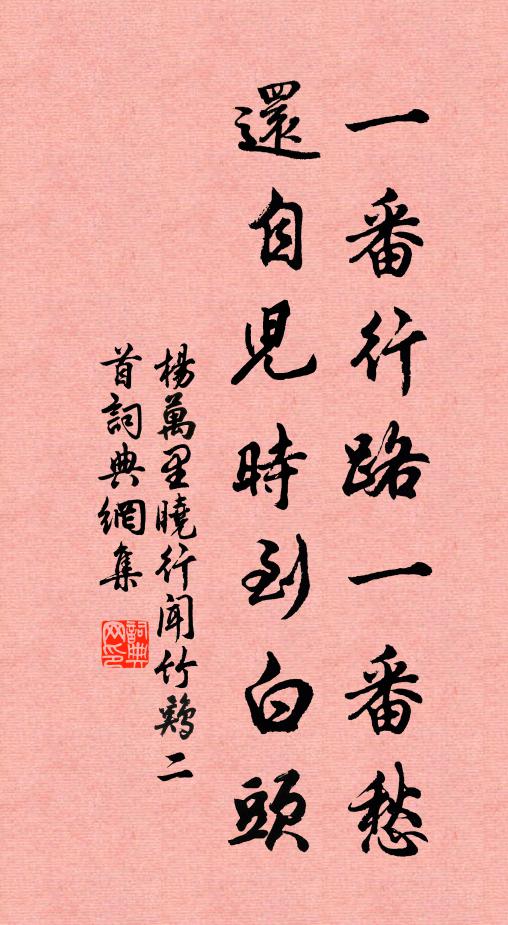 一番行路一番愁
還自児時到白頭
楊萬里曉行聞竹鷄二
首詞典網集
詞典
网印